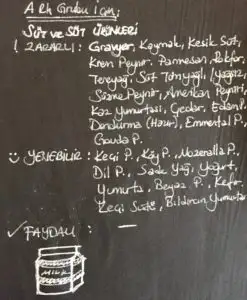 A Rh Grubu için;
SÜT ve SÜT ÜRÜNLERİ
! ZARARLI : Gravyer, Kaymak, Kesik Süt,
Krem Peynir, Parmesan, Rokfor,
Tereyağı, Süt Tozu Yağlı / Yağsız
Süzme Peynir, Amerikan Peyniri
Kaz Yumurtası, Çedar, Edam,
Dondurma (Hazır), Emmental P.,
Gouda P.
YENEBİLİR : Keçi P., Köy P., Mozeralla P.
Dil P., Sade Yağ, Yoğurt,
Yumurta, Beyaz P., Kefir,
Keçi Sütü, Bıldırcın Yumurta
✓ FAYDALI : —
Milk